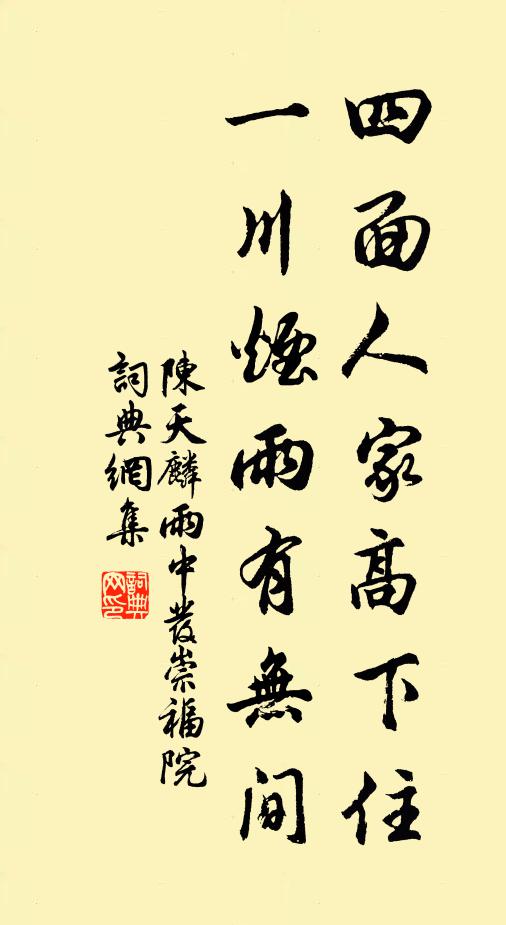 四面人家高下住
一川煙雨有無間
陳天麟雨中發崇福院
詞典網集
詞典
网印